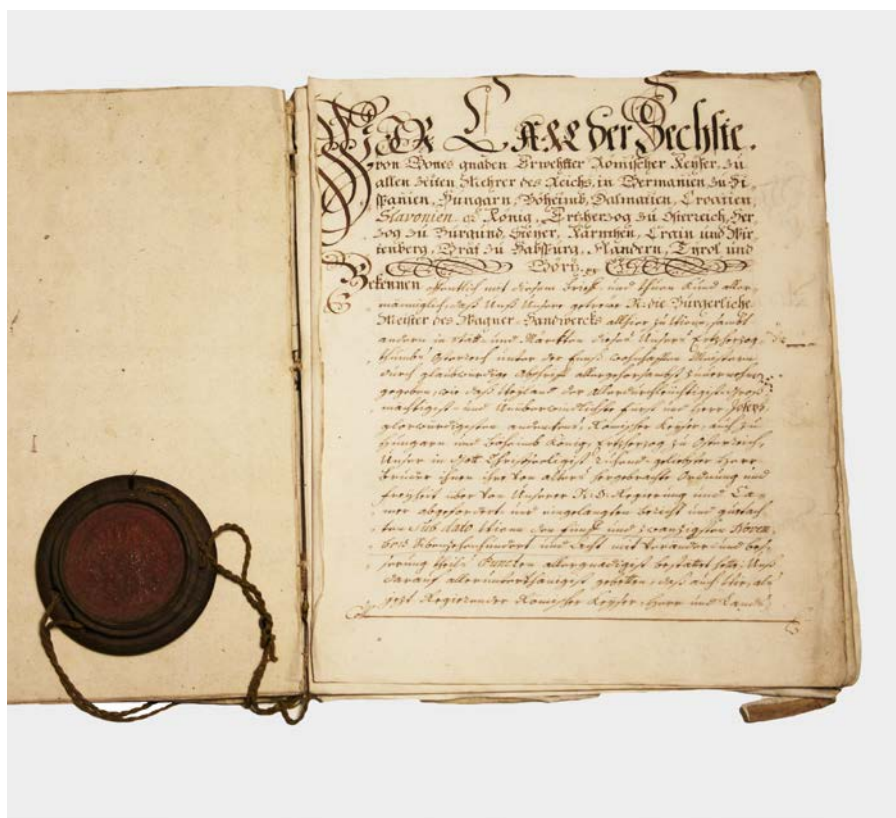 WIR CARL der Sechste.
von Gottes gnaden Erwehlter Römischer Keyser, zu
allen Zeiten Mehrer des Reichs, in Germanien, zu Hi-
spanien, Hungarn, Böheimb, Dalmatien, Croatien,
Slavonien König, Ertzherzog zu Österreich, Her-
zog zu Burgund, Steyer, Kärnthen, Crain und Wir-
tenberg, Graf zu Habspurg, Flandern, Tyrol und
Görtz.
Bekennen offentlich mit diesem Brieff und thuen kund aller-
männiglich, daß Unß Unsere getreue N: die Bürgerliche
Meister des Wagner-Handwercks allhier zu Wienn, sambt
andern in Stätt- und Märckten dieses Unsers Ertzherzog-
thumbs Österreich unter der Ennß Meistern
durch glaubwürdige Abschrifft allergehorsambst
gegeben, wie daß Weyland der Allerdurchleuchtigist- Groß-
mächtigist- und Unüberwindlichste Fürst und Herr, Joseph
glorwürdigisten andenckens, Römischer Keyser, auch zu
Hungarn und Böheimb König, Ertzherzog zu Österreich,
Unser in Gott Christseeligist Ruhend- geliebter Herr
Bruder ihnen ihre von alters hergebrachte Ordnung und
Freyheit über von Unserer N: Ö: Regierung und Ca-
mer abgefordert und eingelangten Bericht und Gutach-
ten sub dato Wienn den fünff und zwanzigsten Novem-
bris Sibenzehenhundert und Acht mit Veränder- und
theils Puncten allergnädigist bestätet hette, Unß
darauf allerunterthänigist gebetten, daß auch Wir, als
jezt Regierender Römischer Keyser, Herr und Lands-